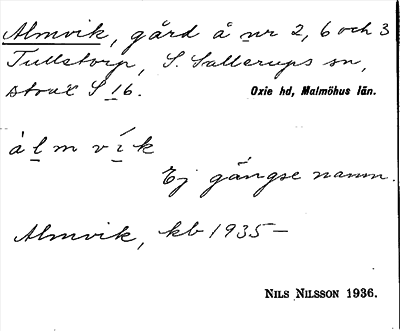 Almvik, gård å nr 2, 6 och 3
Tullstorp, S. Sallerups sn,
strax S 16.
Oxie hd, Malmöhus län.
àl m v í k
Ej gängse namn.
Almvik, kb 1935–
NILS NILSSON 1936.